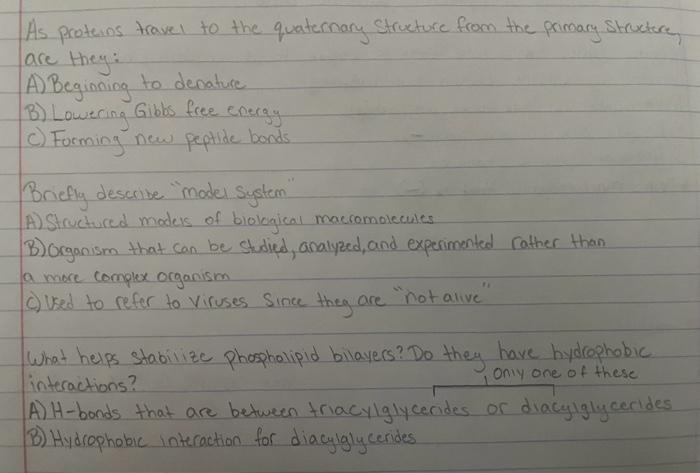 As proteins travel to the quaternary structure from the primary structure,
are they:
A) Beginning to denature
B) Lowering Gibbs free energy
C) Forming new peptide bonds
Briefly describe "model system"
A) Structured models of biological macromolecules
B) Organism that can be studied, analyzed, and experimented rather than
a more complex organism
C) Used to refer to viruses since they are "not alive"
What helps stabilize phospholipid bilayers? Do they have hydrophobic
interactions?
only one of these
A) H-bonds that are between triacylglycerides or diacylglycerides
B) Hydrophobic interaction for diacylglycerides